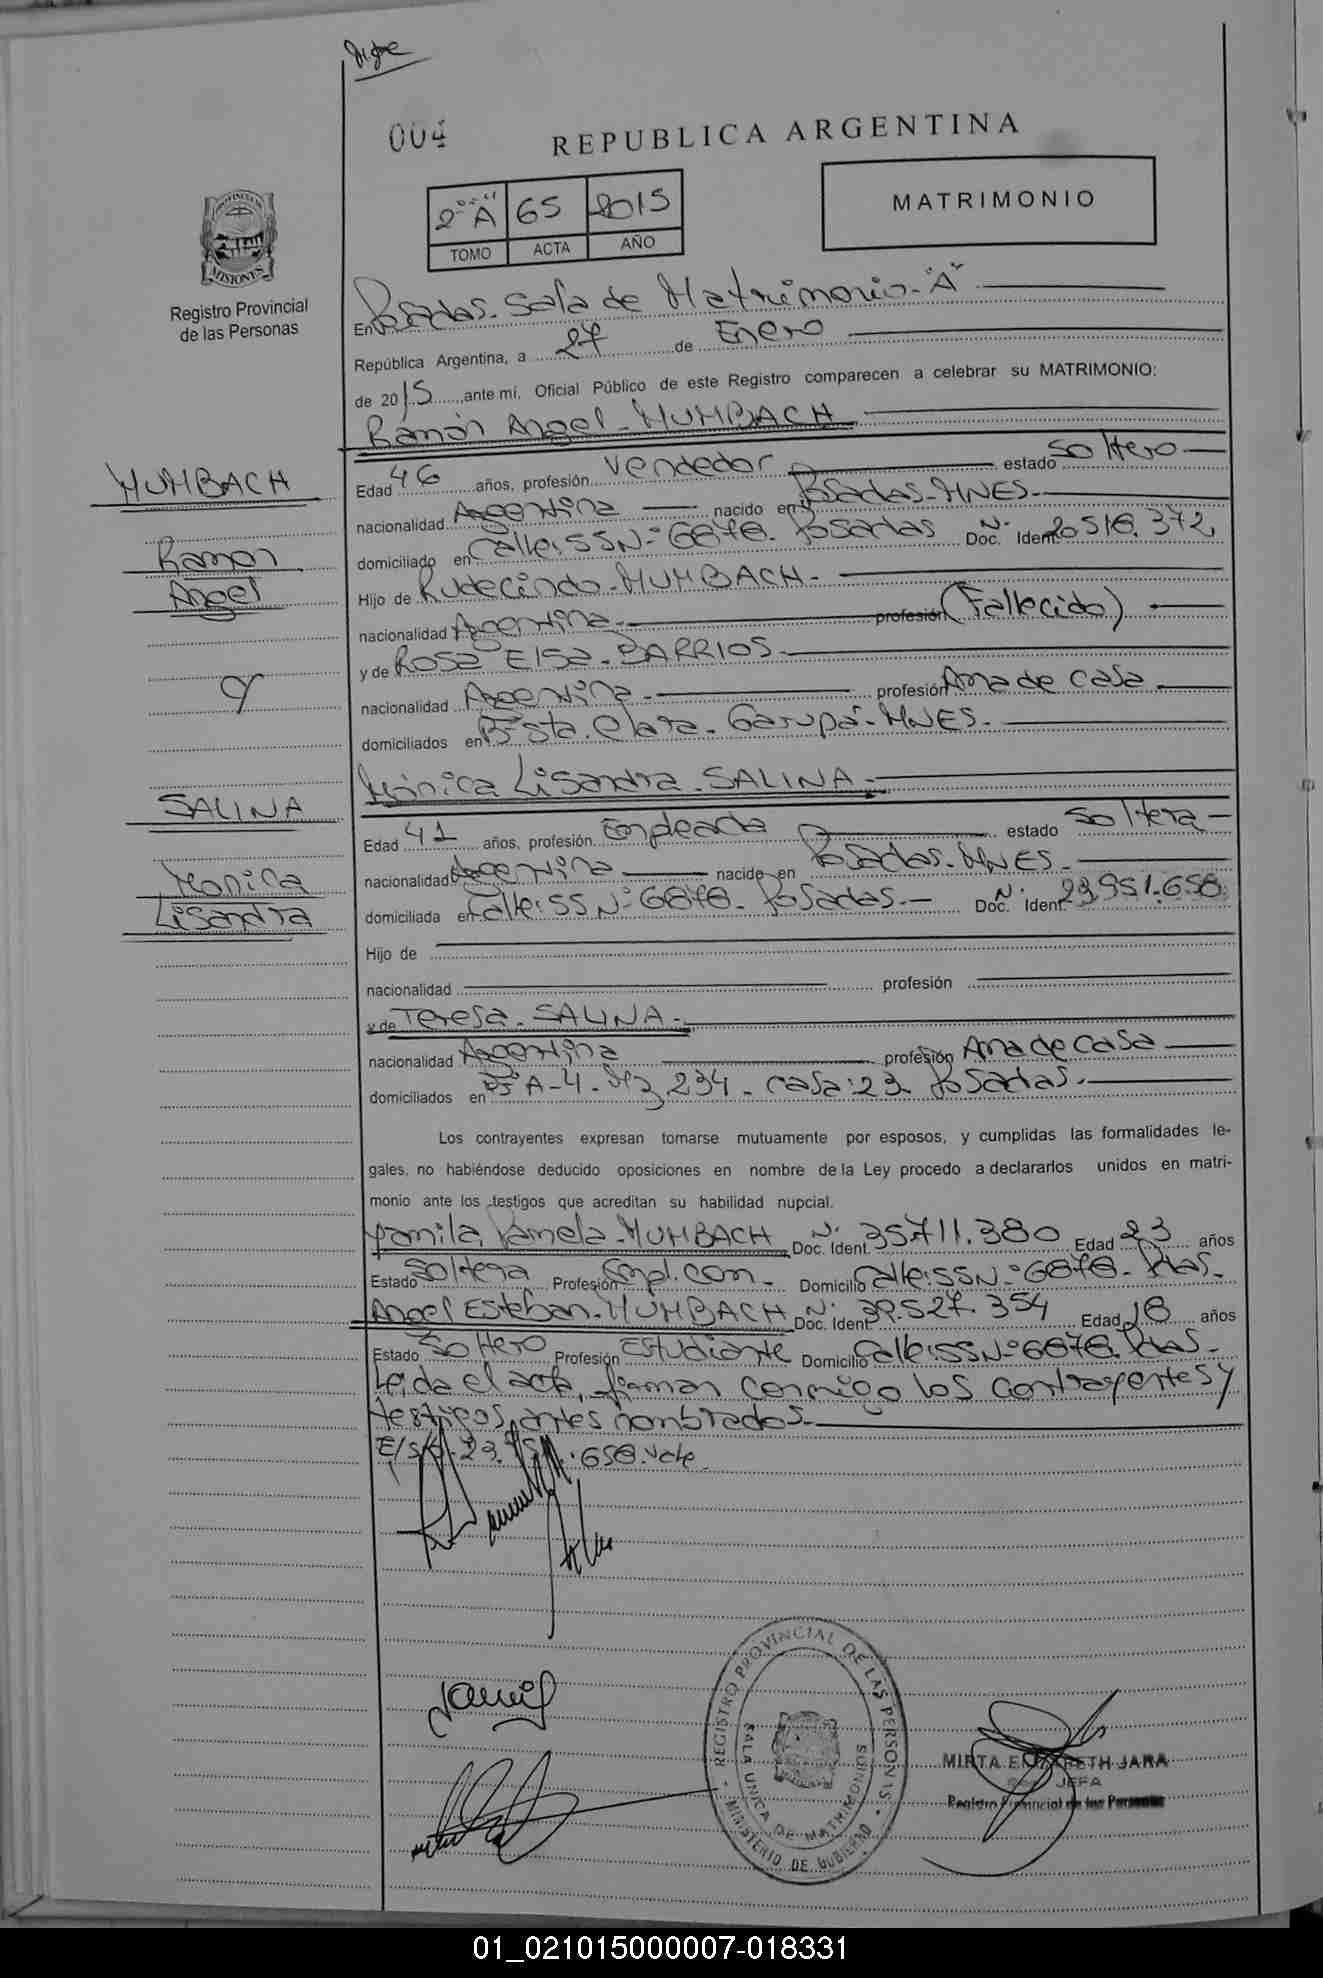 004
REPUBLICA ARGENTINA
2° "A" 65 2015
TOMO ACTA AÑO
MATRIMONIO
PROVINCIA DE MISIONES
Registro Provincial
de las Personas
En Posadas. Sala de Matrimonio. "A"
República Argentina, a 27 de Enero
de 2015 ante mí, Oficial Público de este Registro comparecen a celebrar su MATRIMONIO:
Ramón Angel. MUMBACH
MUMBACH
Ramon
Angel
y
SALINA
Monica
Lisandra
Edad 46 años, profesión Vendedor estado Soltero
nacionalidad Argentina nacido en Posadas-MNES.
domiciliado en Calle: SS N° 6878. Posadas N° Doc. Ident. 20.518.372
Hijo de Rudecindo. MUMBACH.
nacionalidad Argentina. profesión (Fallecido)
y de Rosa Elsa. BARRIOS.
nacionalidad Argentina. profesión Ama de casa
domiciliados en B° Sta. Clara. Garupá-MNES.
Mónica Lisandra. SALINA.
Edad 41 años, profesión Empleada estado Soltera
nacionalidad Argentina nacido en Posadas. MNES.
domiciliada en Calle: SS N° 6878. Posadas. N° Doc. Ident. 23.951.658
Hijo de
nacionalidad profesión
y de Teresa. SALINA.
nacionalidad Argentina profesión Ama de casa
domiciliados en B° A-4. Mz 234. casa: 23. Posadas.
Los contrayentes expresan tomarse mutuamente por esposos, y cumplidas las formalidades le-
gales, no habiéndose deducido oposiciones en nombre de la Ley procedo a declararlos unidos en matri-
monio ante los testigos que acreditan su habilidad nupcial.
Yamila Pamela. MUMBACH N° Doc. Ident. 35.711.380 Edad 23 años
Estado Soltera Profesión Empl. com. Domicilio Calle: SS N° 6878. Pdas.
Angel Esteban. MUMBACH N° Doc. Ident. 39.527.354 Edad 18 años
Estado Soltero Profesión Estudiante Domicilio Calle: SS N° 6878. Pdas.
Leida el acta, firman conmigo los contrayentes y
testigos antes nombrados.
E/s/r. 23.951.658. Vale.
REGISTRO PROVINCIAL DE LAS PERSONAS
SALA UNICA DE MATRIMONIOS
MINISTERIO DE GOBIERNO
MIRTA ELIZABETH JARA
JEFA
Registro Provincial de las Personas
01_021015000007-018331